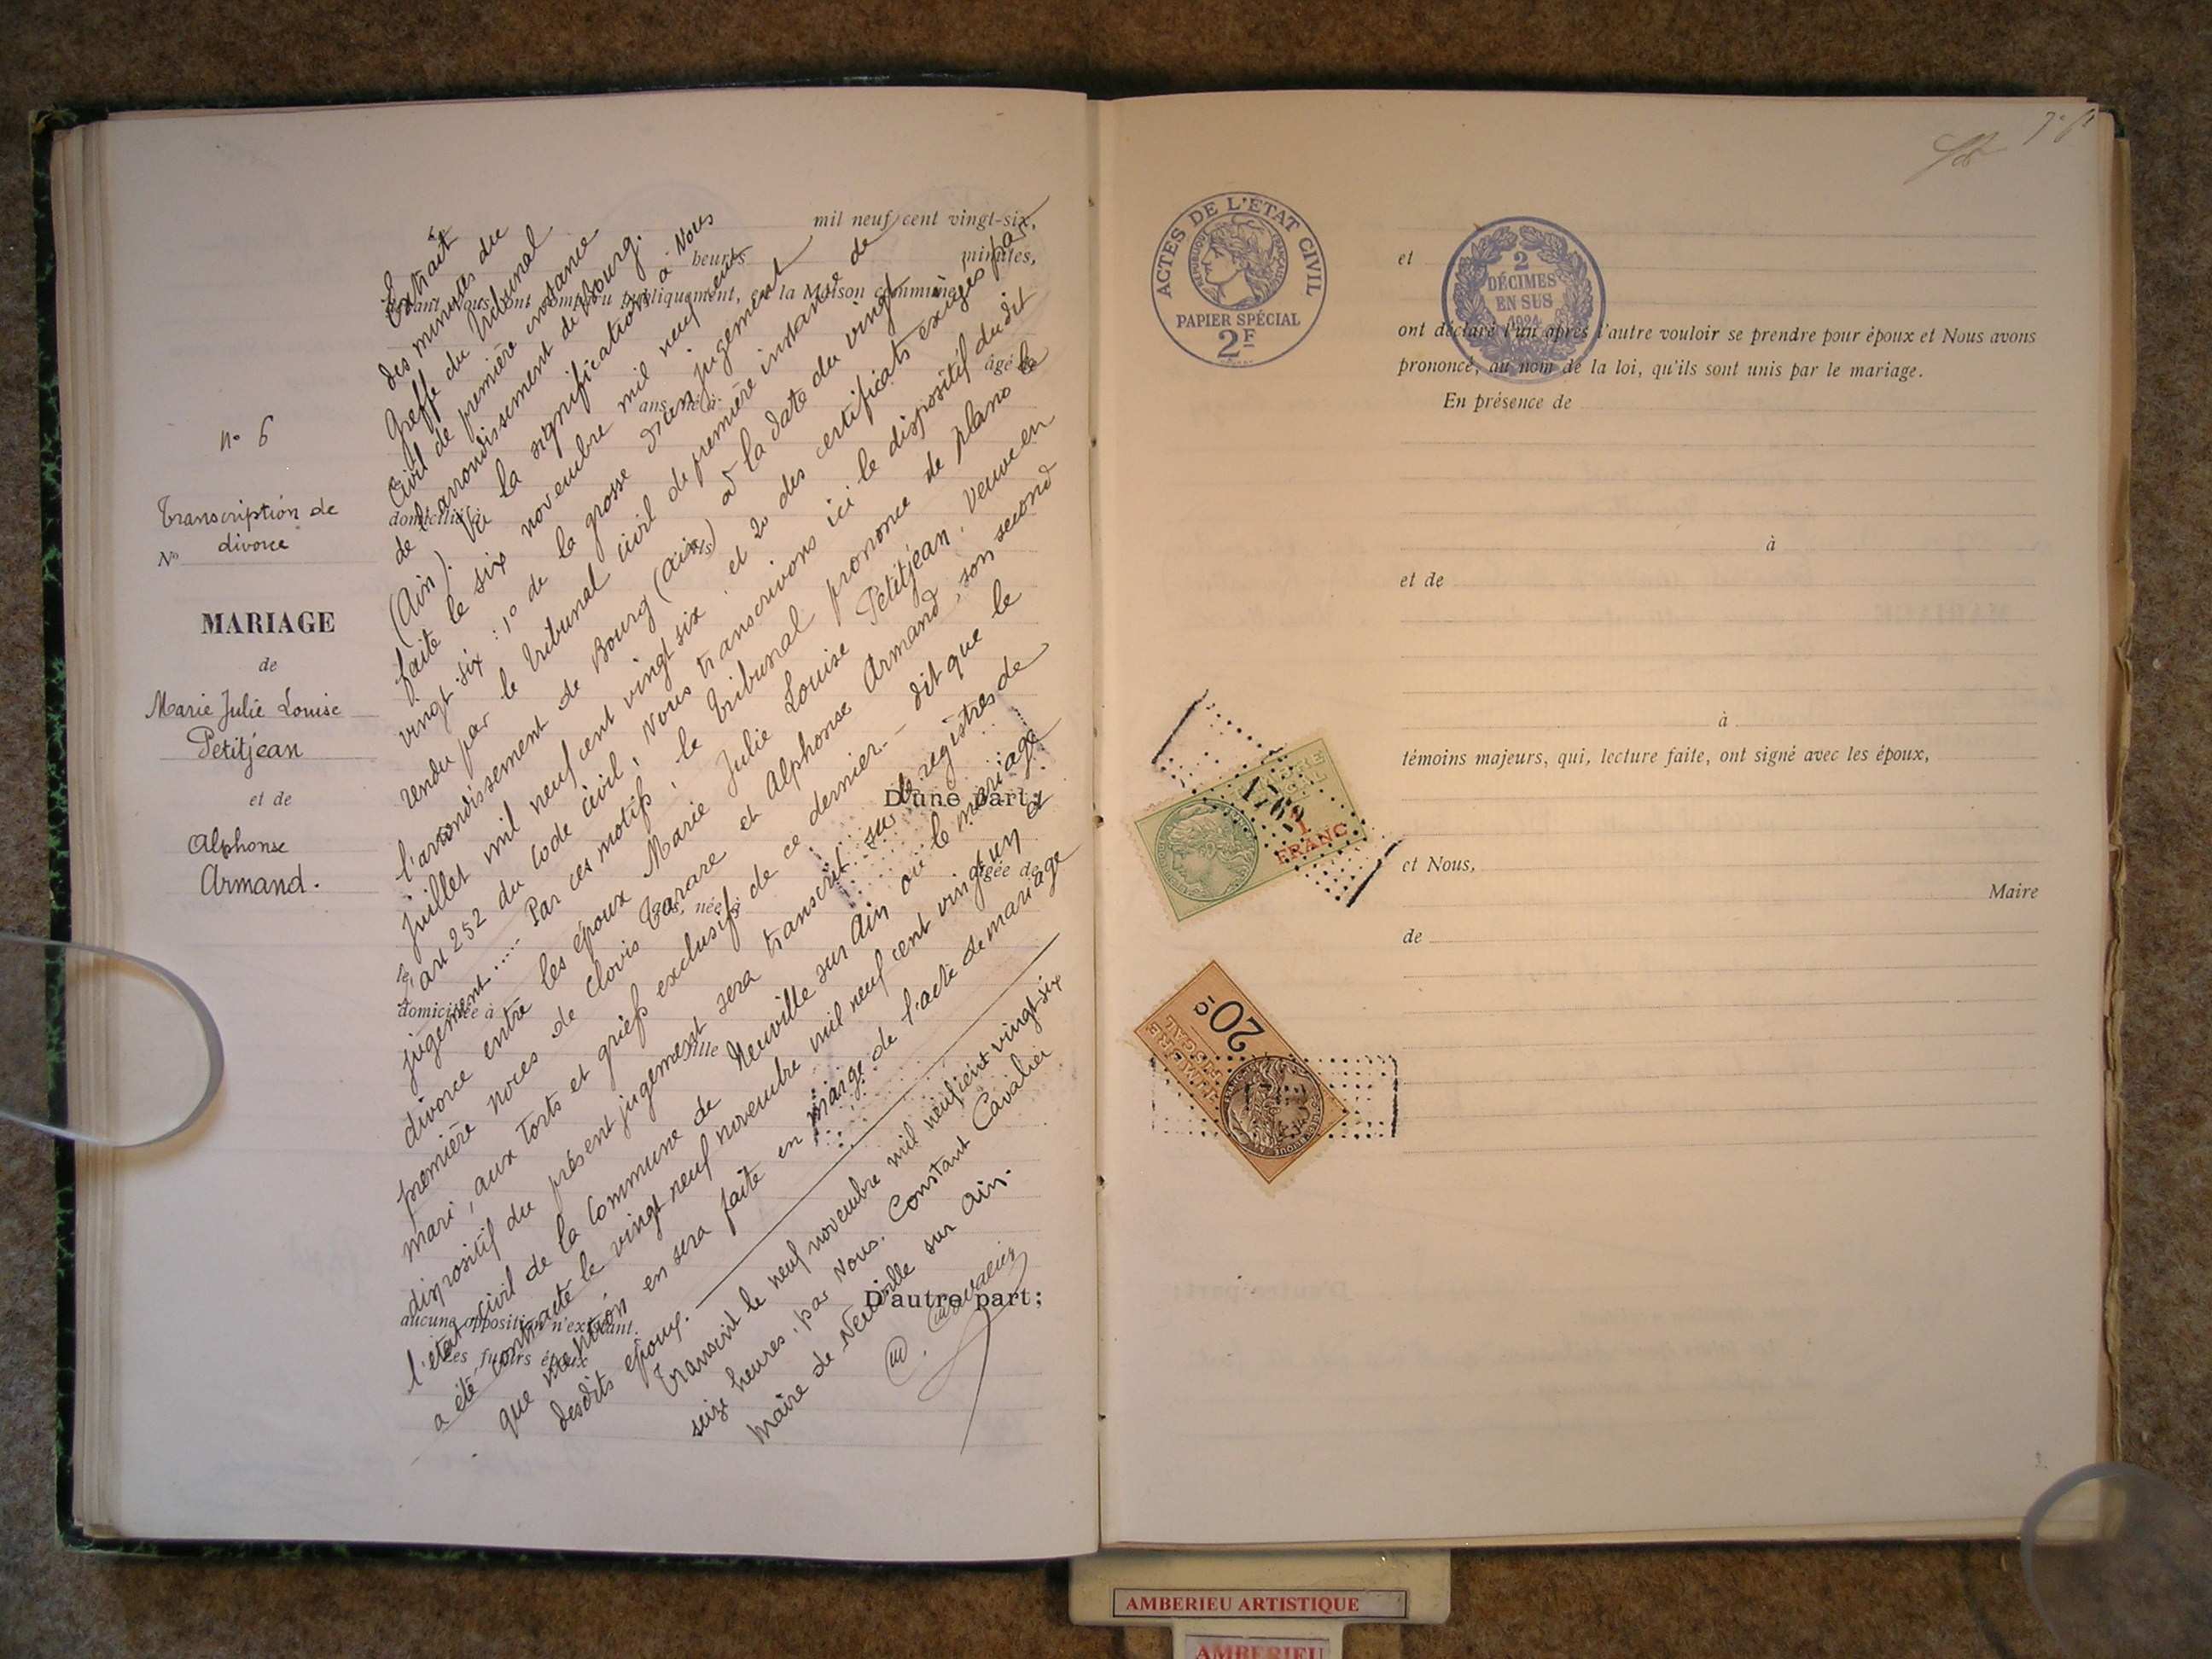 N° 6
Transcription de
divorce
N°
MARIAGE
de
Marie Julie Louise
Petitjean
et de
Alphonse
Armand.
mil neuf cent vingt-six,
heures
minutes,
devant Nous, ont comparu publiquement, en la Maison commune
âgé de
ans, né à
domicilié à
fils
D'une part;
âgée de
ans, née à
domiciliée à
fille
D'autre part;
aucune opposition n'existant.
Les futurs époux
Extrait
des minutes du
Greffe du Tribunal
Civil de première instance
de l'arrondissement de Bourg.
(Ain). Vu la signification à Nous
faite le six novembre mil neuf cent
vingt six : 1° de la grosse d'un jugement
rendu par le Tribunal civil de première instance de
l'arrondissement de Bourg (Ain) à la date du vingt
juillet mil neuf cent vingt six ; et 2° des certificats exigés par
l'art 252 du Code civil, Nous transcrivons ici le dispositif dudit
jugement ..... Par ces motifs, le Tribunal prononce de plano le
divorce entre les époux Marie Julie Louise Petitjean, veuve en
première noces de Clovis Tarare et Alphonse Armand, son second
mari, aux torts et griefs exclusifs de ce dernier. - dit que le
dispositif du présent jugement sera transcrit sur les registres de
l'état civil de la Commune de Neuville sur Ain où le mariage
a été contracté le vingt neuf novembre mil neuf cent vingt un &
que mention en sera faite en marge de l'acte de mariage
desdits époux.
Transcrit le neuf novembre mil neuf cent vingt-six
seize heures, par Nous. Constant Cavalier
Maire de Neuville sur Ain.
Cavalier
ACTES DE L'ÉTAT CIVIL
RÉPUBLIQUE FRANÇAISE
PAPIER SPÉCIAL
2F
2
DÉCIMES
EN SUS
1924
et
ont déclaré l'un après l'autre vouloir se prendre pour époux et Nous avons
prononcé, au nom de la loi, qu'ils sont unis par le mariage.
En présence de
à
et de
à
témoins majeurs, qui, lecture faite, ont signé avec les époux,
et Nous,
Maire
de
1 FRANC
TIMBRE
FISCAL
20c
AMBERIEU ARTISTIQUE
AMBERIEU